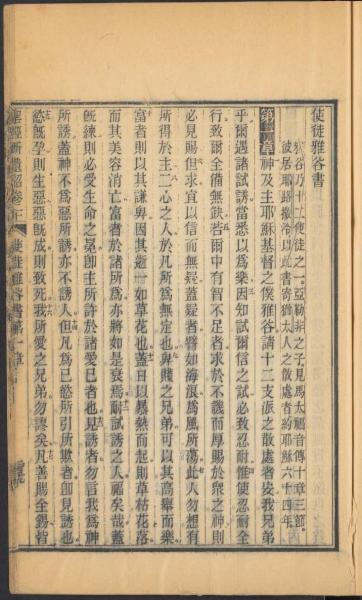 使徒雅谷書
雅谷乃十二使徒之一亞勒非之子見馬太福音傳十章三節
彼居耶路撒冷以此書寄猶太人之散處者約耶穌六十四年
第一章神及主耶穌基督之僕雅谷請十二支派之散處者安我兄弟
乎爾遇諸試誘當悉以爲樂因知試爾信之試必致忍耐惟使忍耐全
行致爾全備無缺若爾中有智不足者求於不譏而厚賜於衆之神則
必見賜但求宜以信而無疑蓋疑者譬如海浪爲風所蕩此人勿想有
所得於主二心之人於凡所爲無定也卑賤之兄弟可以其高舉而樂
富者則以其謙卑因其逝如草花也蓋日以暴熱而起則草枯花落
而其美容消亡富者於諸所爲亦將如是衰焉耐試誘之人福矣哉蓋
旣練則必受生命之冕卽主所許於諸愛己者也見誘者勿言我爲神
所誘蓋神不爲惡所誘亦不誘人但凡爲己慾所引所欺者卽見誘也
慾旣孕則生惡惡旣成則致死我所愛之兄弟勿謬矣凡善賜全錫皆
使徒雅谷書第一章